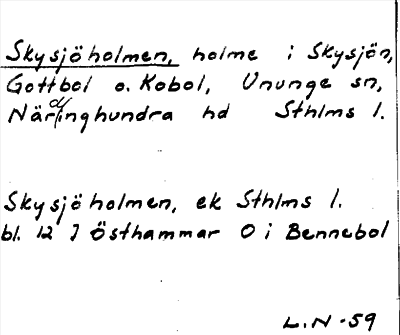 Skysjöholmen, holme i Skysjön,
Gottbol o. Kobol, Ununge sn,
Närdinghundra hd Sthlms l.
Skysjöholmen, ek Sthlms l.
bl. 12 J Östhammar O i Bennebol
L.N -59